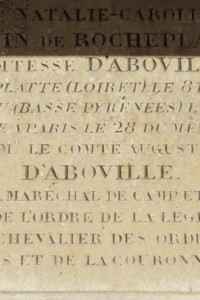 NATALIE-CAROL
IN DE ROCHEPLA
MTESSE D'ABOVIL
PLATTE (LOIRET) LE 8
(BASSE PYRÉNÉES) L
E A PARIS LE 28 DU ME
LE COMTE AUGUST
D'ABOVILLE.
MARÉCHAL DE CAMP ET
DE L'ORDRE DE LA LÉG
CHEVALIER DES ORD
S ET DE LA COURONN